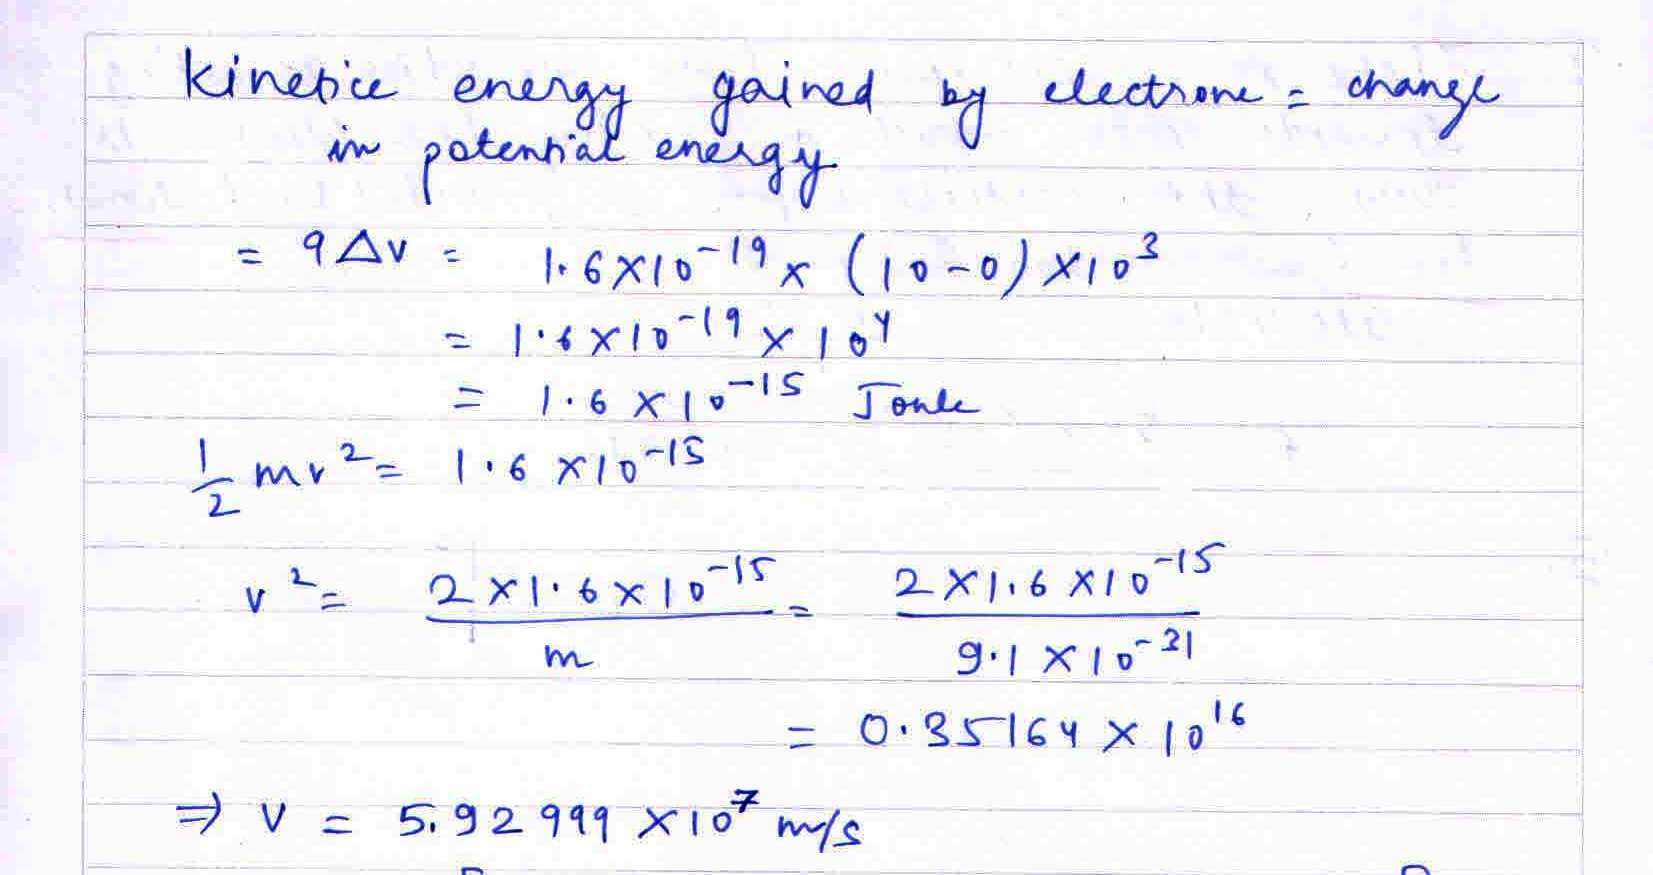 Kinetice energy gained by electrone = change
in potential energy
= q Δv = 1.6×10⁻¹⁹ × (10-0) ×10³
= 1.6×10⁻¹⁹ × 10⁴
= 1.6 ×10⁻¹⁵ Joule
1/2 mv² = 1.6 ×10⁻¹⁵
v² = 2×1.6×10⁻¹⁵/m = 2×1.6×10⁻¹⁵/9.1×10⁻³¹
= 0.35164 × 10¹⁶
⇒ v = 5.92999 ×10⁷ m/s